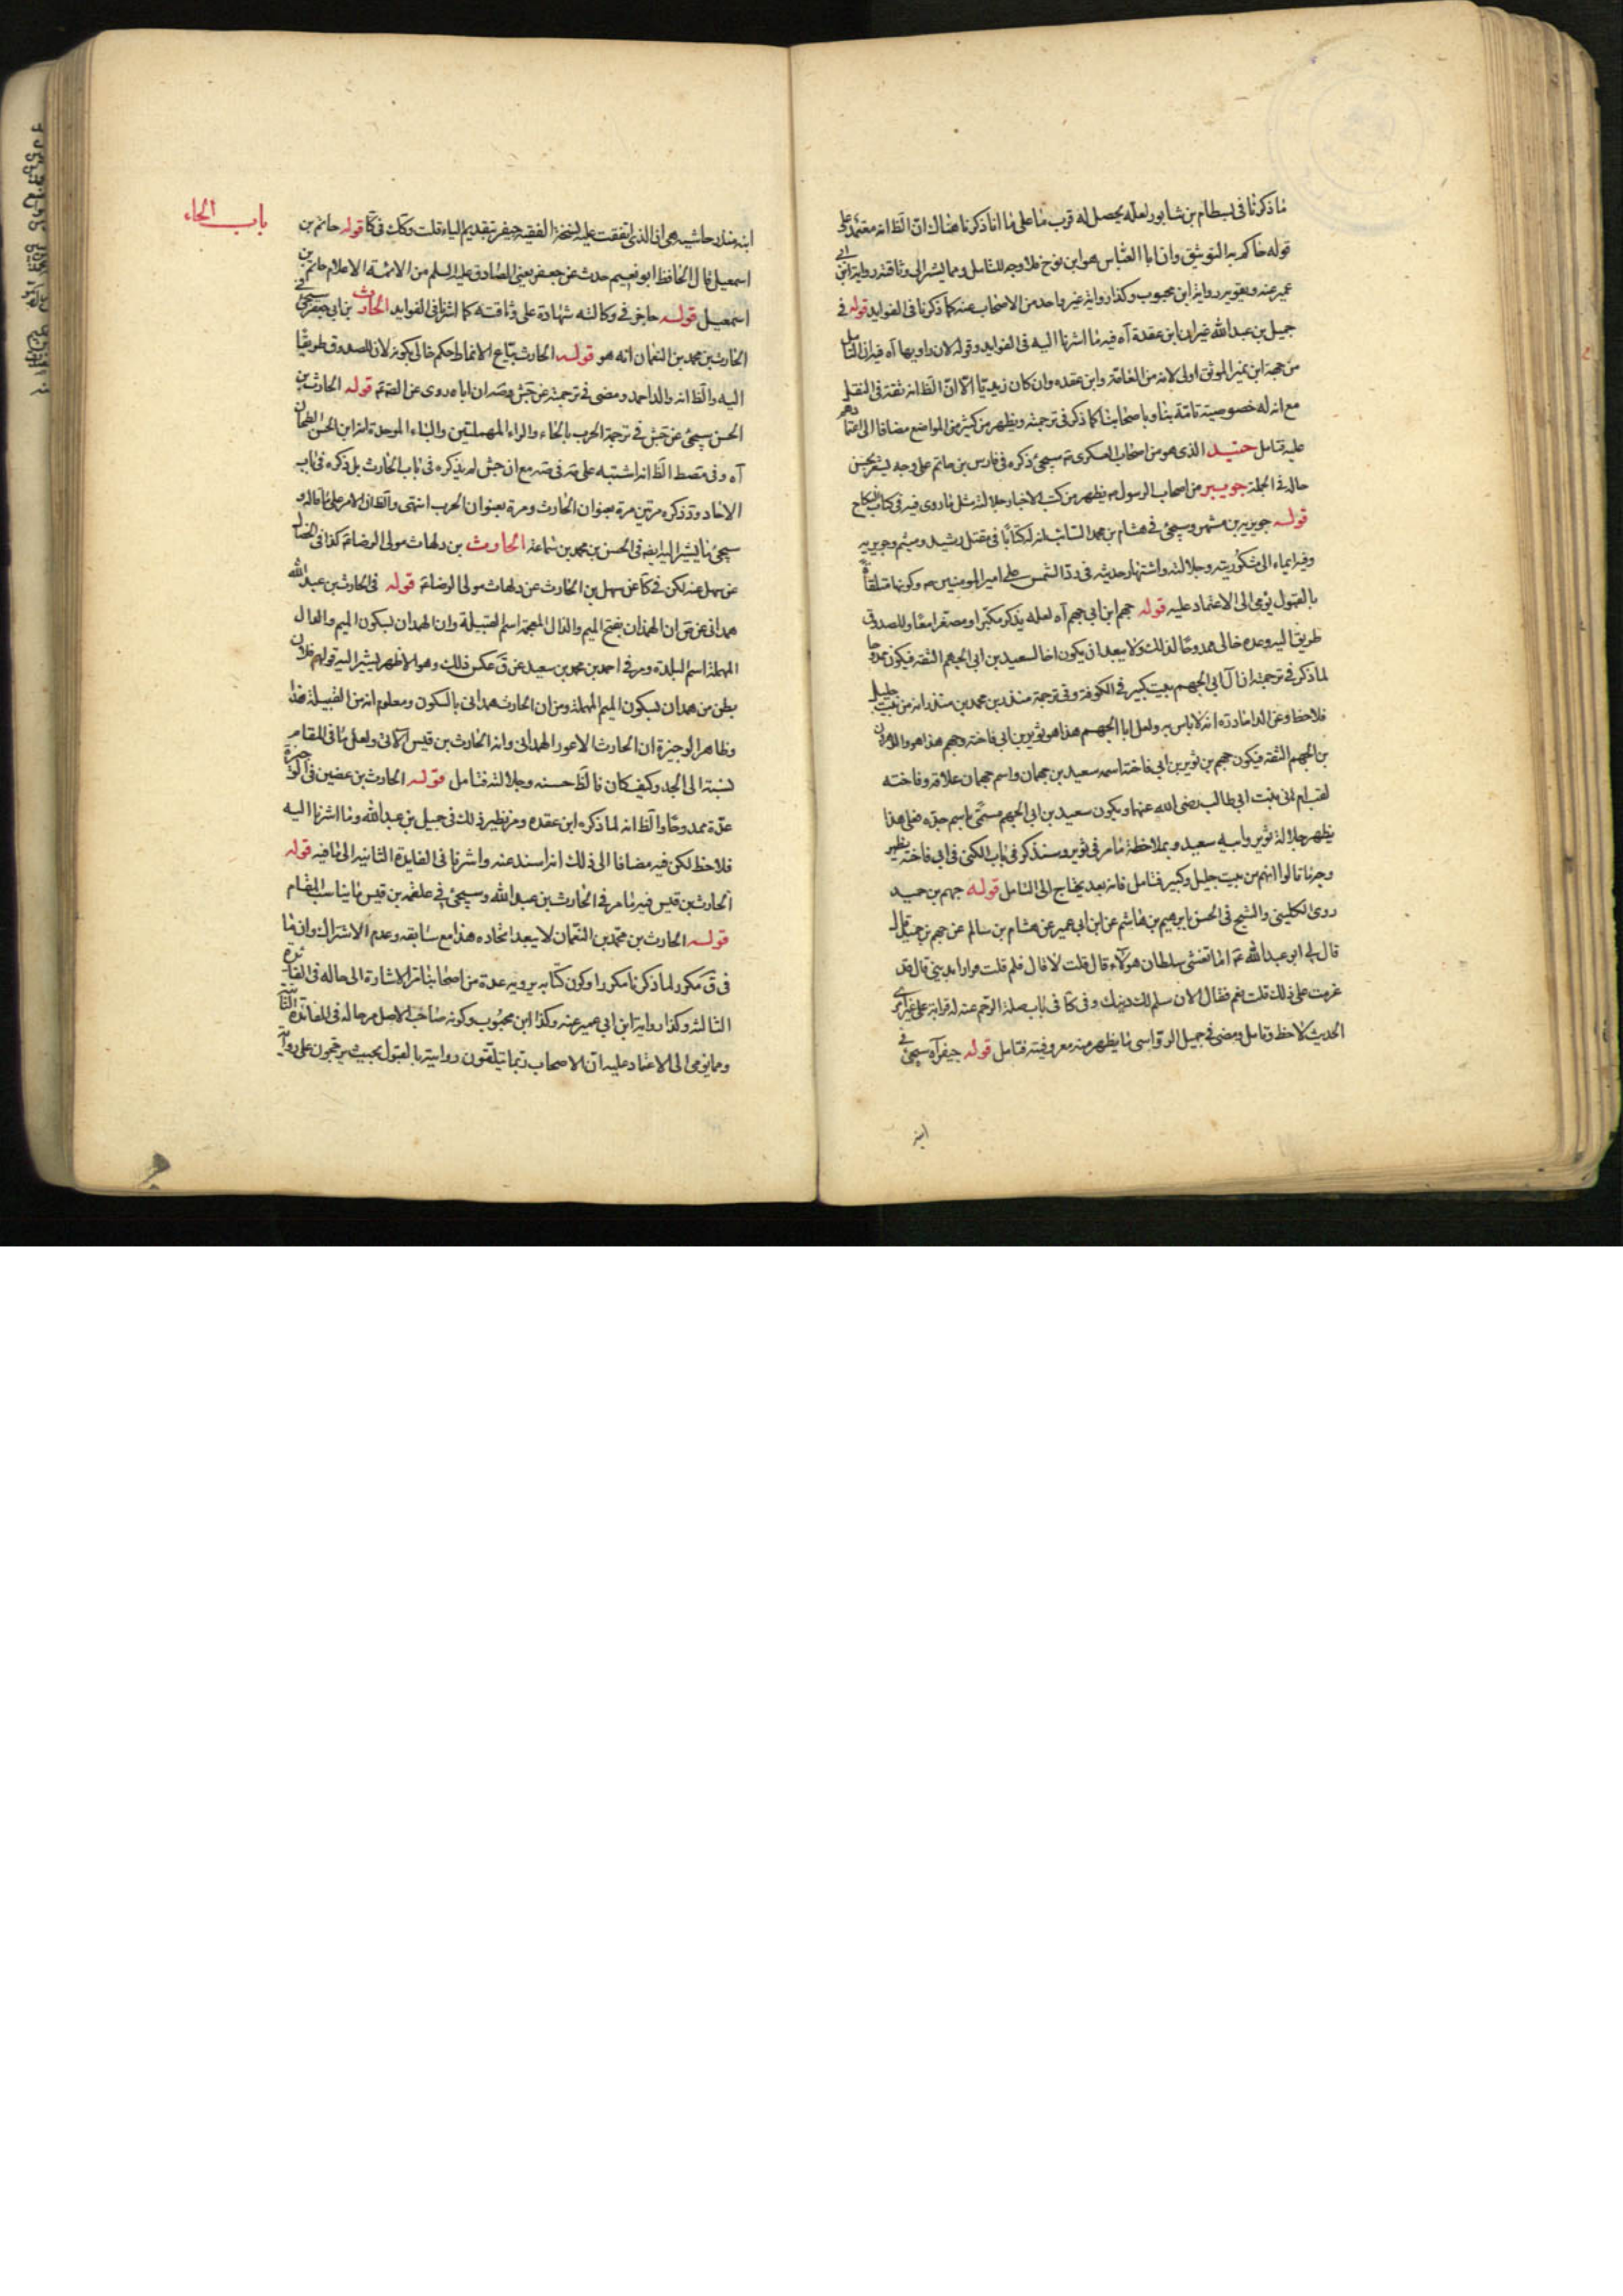 ما ذكرنا فى بسطام بن شابور لعله يحصل له قرب ما على ما انا ذكرنا هناك ان الظ انه معتمد على
قوله حاكم به التوثيق وان ابا العباس هو ابن نوح فلا وجه للتامل ومما يشير الى وثاقته رواية ابن ابى
عمير عنه ويقويه رواية ابن محبوب وكذا رواية غير واحد من الاصحاب عنه كما ذكرنا فى الفوايد قوله فى
جميل بن عبد الله غير ان ابن عقدة آه فيه ما اشرنا اليه فى الفوايد وقوله لان راويها آه فيه ان التامل
من جهة ابن نمير الموثق اولى لانه من العامة وابن عقده وان كان زيديا الا ان الظ انه ثقة فى النقل
مع انه له خصوصية تامة بنا وباصحابنا كما ذكر فى ترجمته ويظهر من كثير من المواضع مضافا الى اعتمادهم
عليه فتامل جنيد الذى هو من اصحاب العسكرى ع سيجئ ذكره فى فارس بن حاتم على وجه يشعر بحسن
حاله فى الجملة جويبر من اصحاب الرسول ص يظهر من كتب الاخبار جلالته مثل ما روى فيه فى كتاب النكاح
قوله جويرية بن مسهر وسيجئ فى هشام بن محمد السائب ان له كتابا فى مقتل رشيد وميثم وجويرية
وفيه ايماء الى مشكوريته وجلالته واشتهار حديثه فى رد الشمس على امير المومنين ع وكونها متلقاة
بالقبول يؤمى الى الاعتماد عليه قوله جهم ابن ابى جهم آه لعله يذكر مكبرا ومصغرا معا وللصدوق
طريق اليه وعده خالى ممدوحا لذلك ولا يبعد ان يكون اخا لسعيد بن ابى الجهم الثقة فيكون ممدوحا
لما ذكر فى ترجمته ان آل ابى الجهم بيت كبير فى الكوفة وفى ترجمة منذر بن محمد بن منذر انه من بيت جليل
فلاحظ وعن الداماد ره انه لا باس به ولعل ابا الجهم هذا هو ثوير بن ابى فاخته وجهم هذا هو والد هارون
بن الجهم الثقة فيكون جهم بن ثوير بن ابى فاخته اسمه سعيد بن جهمان واسم جهمان علاقه وفاخته
لقب ام هانى بنت ابى طالب رضى الله عنها ويكون سعيد بن ابى الجهم مسمى باسم جده فعلى هذا
يظهر جلالة ثوير وابيه سعيد وبملاحظة ما مر فى ثوير وسنذكر فى باب الكنى فى ابى فاخته يظهر
وجه ما قالوا انهم من بيت جليل وكبير فتامل فانه بعد يحتاج الى التامل قوله جهم بن حميد
روى الكلينى والشيخ فى الحسن بابرهيم بن هاشم عن ابن ابى عمير عن هشام بن سالم عن جهم بن حميد قال
قال لى ابو عبد الله ع اما تغشى سلطان هولاء قال قلت لا قال فلم قلت فرارا بدينى قال وقد
عزمت على ذلك قلت نعم فقال الان سلم لك دينك وفى كا فى باب صلة الرحم عنه له قرابة على غير امرى
الحديث لاحظ وتامل ومضى فى جميل الرواسى ما يظهر منه معروفيته فتامل قوله جيفر آه سيجئ فى
ابنه
باب الحاء
ابنه منذر حاشيه هى ان الذى اتفقت عليه نسخة الفقيه جيفر بتقديم الياء قلت وكك فى كا قوله حاتم بن
اسمعيل قال الحافظ ابو نعيم حدث عن جعفر يعنى الصادق عليه السلم من الائمة الاعلام حاتم بن
اسمعيل قوله حاجز فى وكالته شهادة على وثاقته كما اشرنا فى الفوايد الحارث بن ابى جعفر سيجئ فى
الحارث بن محمد بن النعمان انه هو قوله الحارث بياع الانماط حكم خالى بكونه لان للصدوق طريقا
اليه والظ انه والد احمد ومضى فى ترجمته عن جش وصه ان اباه روى عن الص ع قوله الحارث بن
الحسن سيجئ عن جش فى ترجمة الحرب بالحاء والراء المهملتين والباء الموحدة انه ابن الحسن الطحان
آه وفى مصط الظ انه اشتبه على مه فى صه مع ان جش لم يذكره فى باب الحارث بل ذكره فى باب
الاحاد ود ذكره مرتين مرة بعنوان الحارث ومرة بعنوان الحرب انتهى والظ ان الامر على ما قاله و
سيجئ ما يشير اليه ايضه فى الحسن بن محمد بن سماعة الحارث بن دلهاث مولى الرضا ع كذا فى الخصال
عن سهل عنه لكن فى كا عن سهل بن الحارث عن دلهاث مولى الرضا ع قوله فى الحارث بن عبد الله
همدانى عن ق ان الهمذان بفتح الميم والذال المعجمة اسم القبيلة وان الهمدان بسكون الميم والدال
المهملة اسم البلدة ومر فى احمد بن محمد بن سعيد عن ق عكس ذلك وهو الاظهر يشير اليه قولهم فلان
بطن من همدان بسكون الميم المهملة ومن ان الحارث همدانى بالسكون ومعلوم انه من القبيلة هذا
وظاهر الوجيزة ان الحارث الاعور الهمدانى وانه الحارث بن قيس الآتى ولعل ما فى المقام
نسبة الى الجد وكيف كان فالظ حسنه وجلالته فتامل قوله الحارث بن غضين فى الوجيزة
عدة ممدوحا والظ انه لما ذكره ابن عقده ومر نظير ذلك فى جميل بن عبد الله وما اشرنا اليه
فلاحظ لكن فيه مضافا الى ذلك انه اسند عنه واشرنا فى الفايدة الثانيه الى ما فيه قوله
الحارث بن قيس فيه ما مر فى الحارث بن عبد الله وسيجئ فى علقمه بن قيس ما يناسب المقام
قوله الحارث بن محمد بن النعمان لا يبعد اتحاده هذا مع سابقه وعدم الاشتراك وان ما
فى ق مكرر لما ذكرنا مكررا وكون كتابه يرويه عدة من اصحابنا مر الاشارة الى حاله فى الفائدة
الثالثة وكذا رواية ابن ابى عمير عنه وكذا ابن محبوب وكونه صاحب الاصل مر حاله فى الفائدة الثانية
ومما يؤمى الى الاعتماد عليه ان الاصحاب ربما يتلقون روايته بالقبول بحيث يرجحون على رواية